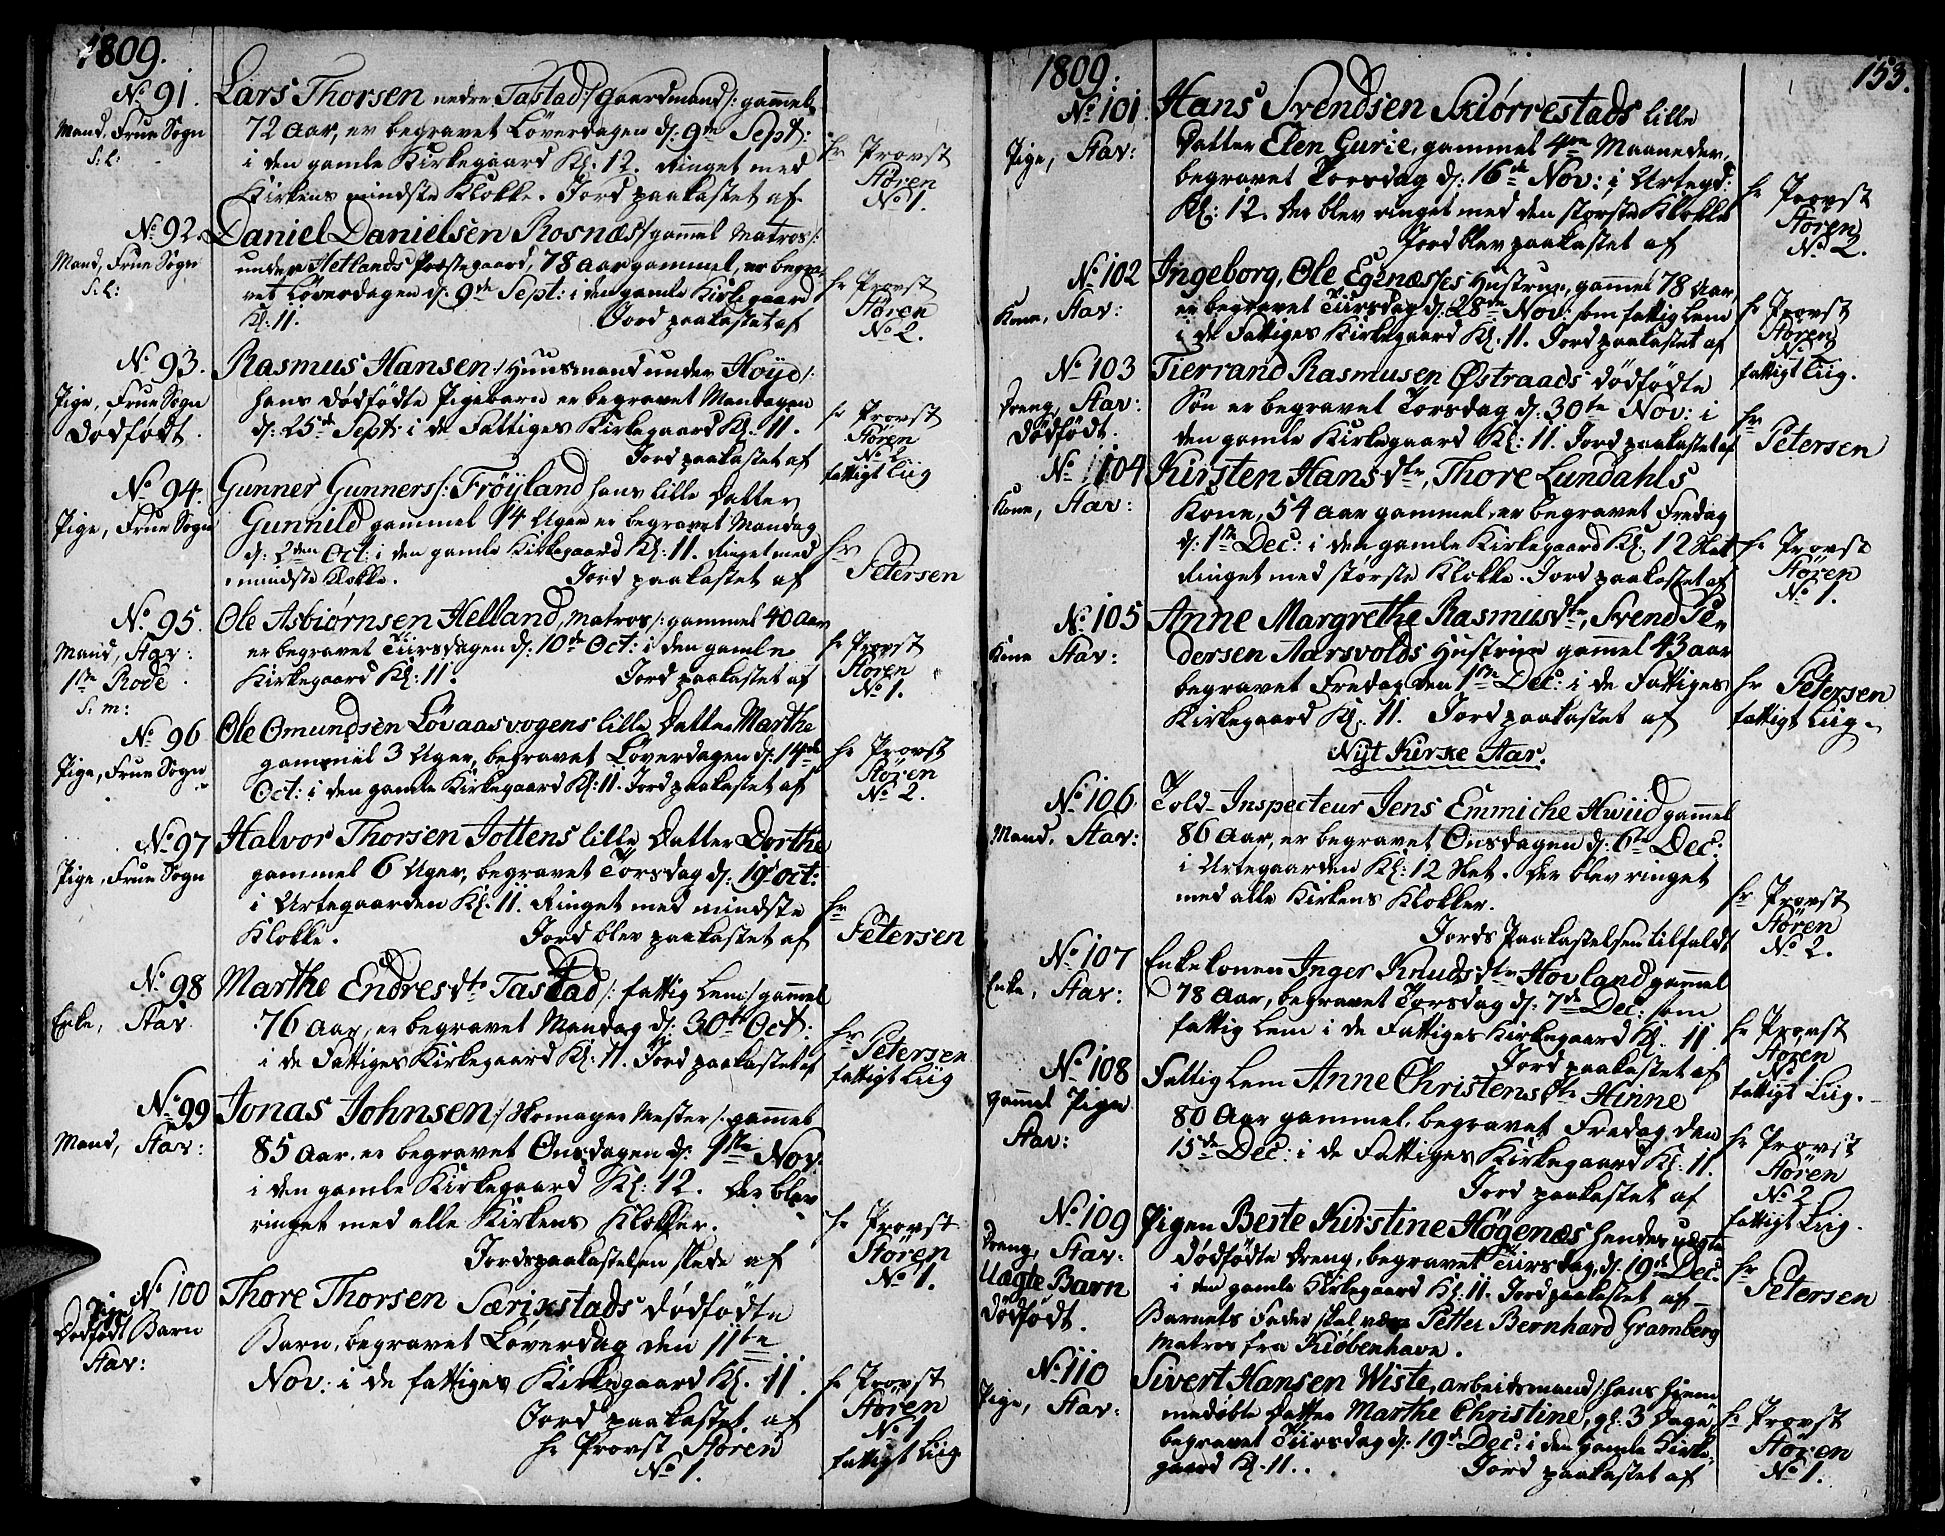 1809.
No 91. Lars Thorsen nedre Tastad /: Gaardmand :/ gammel
Mand, Frue Sogn
S: L:
72 Aar, er begravet Løverdagen d: 9de Sept:
i den gamle Kirkegaard Kl: 12. Ringet med
Kirkens mindste Klokke. Jord paakastet af
hr Provst
Støren
No 1.
No 92. Daniel Danielsen Rosnæs /: gammel Matros :/
Mand, Frue Sogn
S: L:
under Hetlands Præstegaard, 78 Aar gammel, er begra-
vet Løverdagen d: 9de Sept: i den gamle Kirkegaard
Kl: 11. Jord paakastet af
hr Provst
Støren
No 2.
No 93. Rasmus Hansen /: Huusmand under Høye :/
Pige, Frue Sogn
Dødfødt.
hans dødfødte Pigebarn er begravet Mandagen
d: 25de Sept: i de Fattiges Kirkegaard Kl: 11.
Jord paakastet af
hr Provst
Støren
No 2
fattigt Liig
No 94. Gunner Gunners /: Frøyland hans lille Datter
Pige, Frue Sogn
Gunnild gammel 14 Uger er begravet Mandag
d: 2den Oct: i den gamle Kirkegaard Kl: 11. Ringet med
mindste Klokke. Jord paakastet af
hr
Petersen
No 95. Ole Asbiørnsen Helland, Matros /: gammel 40 Aar
Mand, Stav:
1ste Rode
S: m:
er begravet Tiirsdagen d: 10de Oct: i den gamle
Kirkegaard Kl: 11. Jord paakastet af
hr Provst
Støren
No 1.
No 96 Ole Omundsen Løvaasvogens lille Datter Marthe
Pige, Frue Sogn
gammel 3 Uger, begravet Løverdagen d: 14de
Oct: i den gamle Kirkegaard Kl: 11. Jord paakastet af
hr Provst
Støren
No 2.
No 97 Halvor Thorsen Jottens lille Datter Dorthe
Pige, Frue Sogn
gammel 6 Uger, begravet Torsdag d: 19de Oct:
i Urtegaarden Kl: 11. Ringet med mindste
Klokke. Jord blev paakastet af
hr
Petersen
No 98 Marthe Endresdtr Tastad /: fattig Lem :/ gammel
Enke, Stav.
76 Aar, er begravet Mandag d: 30te Oct:
i de Fattiges Kirkegaard Kl: 11. Jord paakastet af
hr
Petersen
fattigt Liig
No 99 Jonas Johnsen /: Skomager Mester :/ gammel
Mand, Stav:
85 Aar, er begravet Onsdagen d: 1ste Nov:
i den gamle Kirkegaard Kl: 12. Der blev
ringet med alle Kirkens Klokker.
Jordspaakastelsen skede af
hr Provst
Støren
No 1.
No 100 Thore Thorsen Særixstads dødfødte
Pige
Dødfødt Barn
Stav:
Barn, begravet Løverdag den 11te
Nov: i de fattiges Kirkegaard Kl. 11.
Jord paakastet af
hr Provst Støren
No 1.
hr Provst
Støren
No 1
fattigt Liig
1809.
153.
No 101 Hans Svendsen Skiørrestads lille
Pige, Stav:
Datter Elen Gurie, gammel 4re Maaneder,
begravet Torsdag d: 16de Nov: i Urtegd:
Kl: 12. Der blev ringet med den største Klokke
Jord blev paakastet af
hr Provst
Støren
No 2.
No 102 Ingeborg, Ole Egenæsses Hustrue, gammel 78 Aar,
Kone, Stav:
er begravet Tiirsdag d: 28de Nov: som fattig Lem
i de Fattiges Kirkegaard Kl: 11. Jord paakastet af
hr Provst
Støren
No 1
fattigt Liig.
No 103 Tierrand Rasmusen Østraads dødfødte
Dreng, Stav:
Dødfødt.
Søn er begravet Torsdag d: 30te Nov: i
den gamle Kirkegaard Kl: 11. Jord paakastet af
hr
Petersen
No 104 Kirsten Hansdtr, Thore Lundahls
Kone, Stav:
Kone, 54 Aar gammel, er begravet Fredag
d: 1ste Dec: i den gamle Kirkegaard Kl. 12 Slet
Ringet med største Klokke. Jord paakastet af
hr Provst
Støren
No 1.
No 105 Anne Margrethe Rasmusdtr, Svend Pe-
Kone Stav:
dersen Aarsvolds Hustrue gammel 43 aar
begravet Fredag den 1ste Dec: i de Fattiges
Kirkegaard Kl: 11. Jord paakastet af
hr Petersen
fattigt Liig.
Nyt Kirke Aar.
No 106 Told-Inspecteur Jens Emmiche Hwiid gammel
Mand, Stav:
86 Aar, er begravet Onsdagen d: 6te Dec:
i Urtegaarden Kl: 12 Slet. Der blev ringet
med alle Kirkens Klokker.
Jords Paakastelsen tilfaldt
hr Provst
Støren
No 2.
No 107 Enkekonen Inger Knudsdtr Hovland gammel
Enke, Stav:
78 Aar, begravet Torsdag d: 7de Dec: som
fattig Lem i de Fattiges Kirkegaard Kl. 11
Jord paakastet af
hr Provst
Støren
No 1
fattigt Liig.
No 108 Fattig Lem Anne Christensdtr Hinne
gammel Pige
Stav:
80 Aar gammel, begravet Fredag den
15de Dec: i de Fattiges Kirkegaard Kl: 11.
Jord paakastet af
hr Provst
Støren
No 2
fattigt Liig.
No 109 Pigen Berte Kirstine Høgenæs hendes uægte
Dreng, Stav:
Uægte Barn
Dødfødt.
dødfødte Dreng, begravet Tiirsdag d: 19de Dec:
i den gamle Kirkegaard Kl: 11. Jord paakastet af
Barnets Fader skal være Petter Bernhard Gramberg
Matros fra Kiøbenhavn.
hr
Petersen
No 110 Sivert Hansen Wiste, Arbeidsmand /: hans hjem-
Pige, Stav:
medøbte Datter Marthe Christine, gl: 3 Dage
begravet Tiirsdag d: 19de Dec: i den gamle Kirke-
gaard Kl: 11. Jord paakastet af
hr Provst
Støren
No 1.